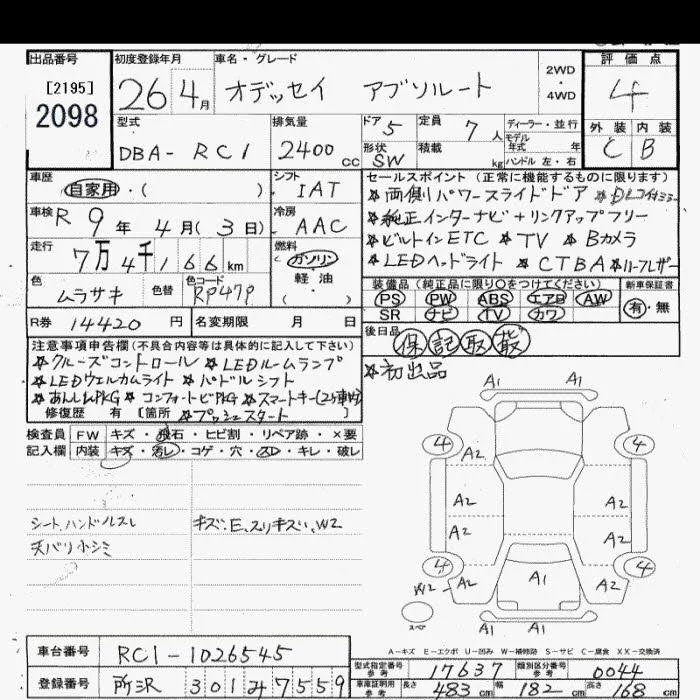 出品番号 初度登録年月 車名・グレード 評価点
[2195] 2098 26年4月 オデッセイ アブソルート 2WD・4WD 4
型式 排気量 ドア 5 定員 7人 ディーラー・並行 外装 内装
DBA-RC1 2400cc 形状 SW 積載 kg モデル年式 年 ハンドル 左・右 C B
車歴 自家用・( ) シフト IAT セールスポイント(正常に機能するものに限ります)
車検 R9年4月(3日) 冷房 AAC
★両側パワースライドドア
★純正インターナビ+リンクアップフリー
★ビルトインETC ★TV ★Bカメラ
★LEDヘッドライト ★CTBA ★ハーフレザー
走行 7万4千166km 燃料 (ガソリン 軽油 ( )
色 ムラサキ 色替 色コード RP47P
装備品(純正品に限り○をつけてください) 新車保証書
PS PW ABS エアB AW 有・無
SR ナビ TV カワ
R券 14420円 名変期限 月 日
後日品 保 記 取
注意事項申告欄(不具合内容等は具体的に記入して下さい)
★初出品
★クルーズコントロール ★LEDルームランプ
★LEDウェルカムライト ★パドルシフト
★あんしんPKG ★コンフォートビPKG ★スマートキー
修復歴 有 [箇所 ★プッシュスタート ]
検査員 FW キズ・飛石・ヒビ割・リペア跡・×要
記入欄 内装 キズ・汚レ・コゲ・穴・スレ・キレ・破レ
シート、ハンドルスレ キズ、E、スリキズい、W2
天バリ小シミ
A1
4 4
A2
A2 A2
A2 A2
4 4
W2 A2 A1 A2
スペア A1
A-キズ E-エクボ U-凹み W-補修跡 S-サビ C-腐食 XX-交換済
車台番号 RC1-1026545 型式指定番号 参考 17637 類別区分番号 参考 0044
登録番号 所沢 301 み 7559 車庫証明用 参考 長さ 483cm 幅 182cm 高さ 168cm